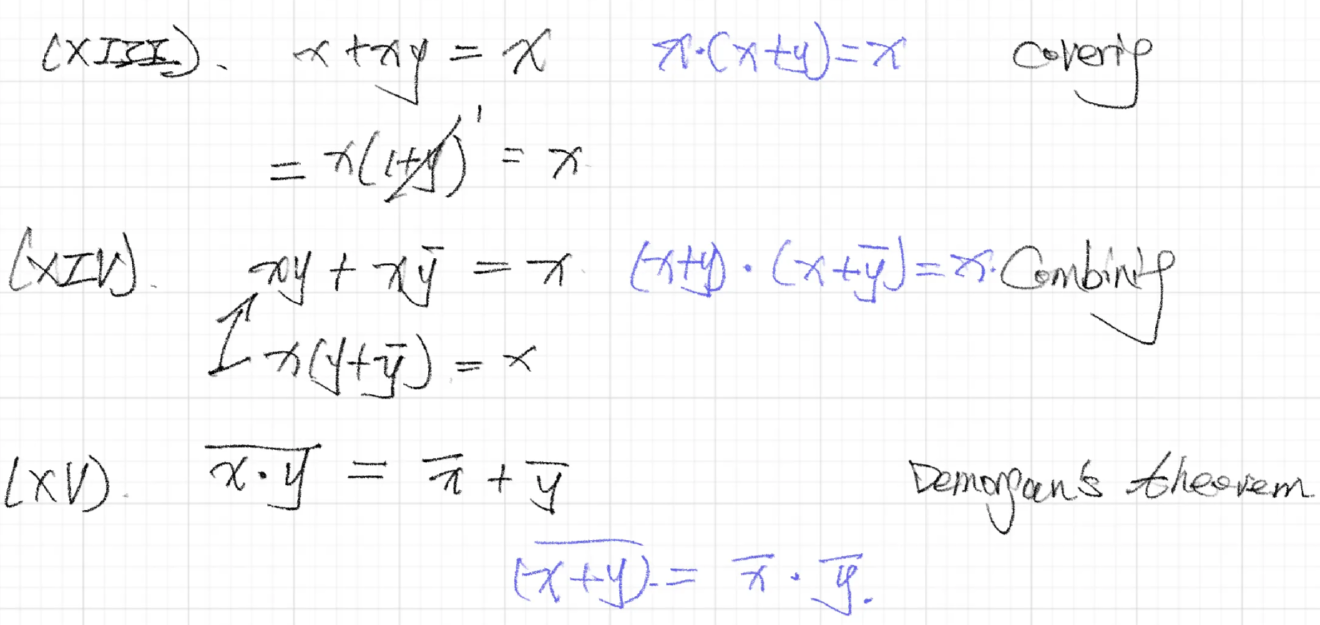 (XIII). x + xy = x x·(x+y) = x Covering
= x(1+y)¹ = x
(XIV). xy + xȳ = x (x+y)·(x+ȳ) = x. Combining
x(y+ȳ) = x
(XV). \overline{x·y} = x̄ + ȳ Demorgan's theorem.
(\overline{x+y}) = x̄ · ȳ.